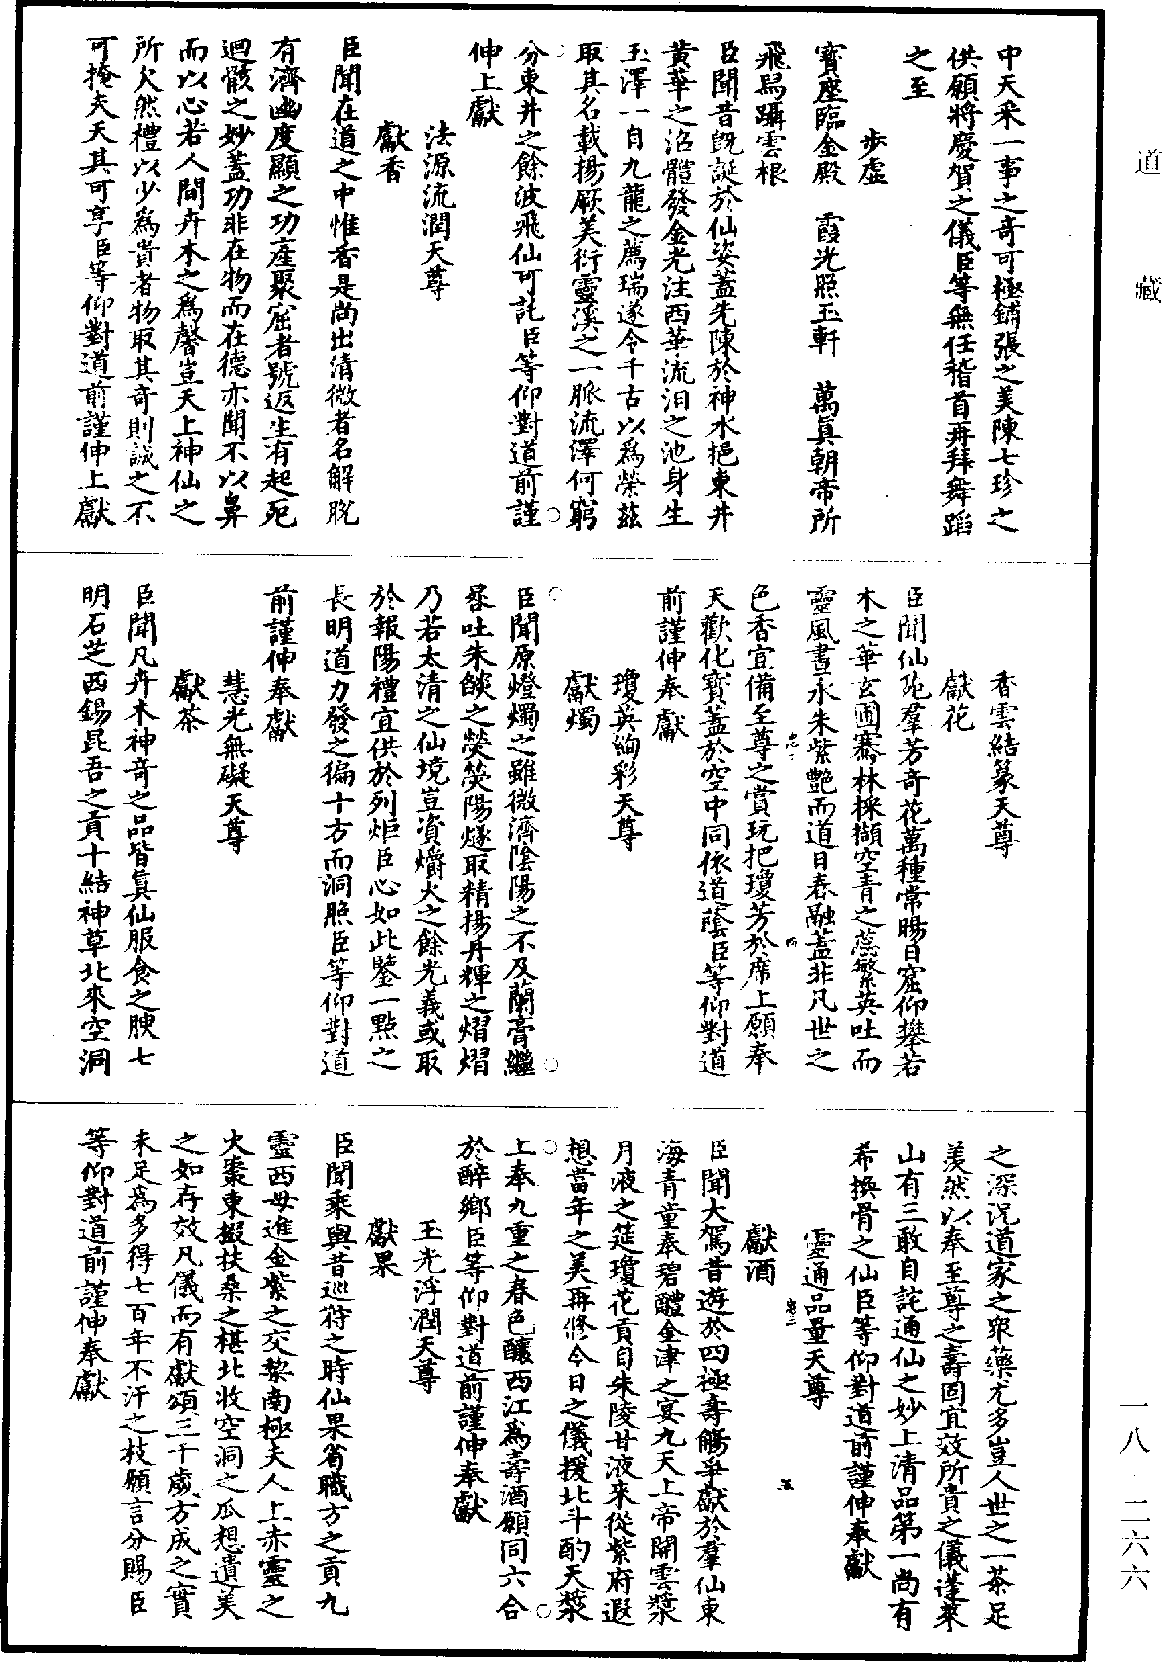 道藏
中天采一事之奇可極鋪張之美陳七珍之
供願將慶賀之儀臣等無任稽首再拜舞蹈
之至
步虛
寶座臨金殿　霞光照玉軒　萬眞朝帝所
飛舄躡雲根
臣聞昔旣誕於仙姿蓋先陳於神水挹東井
黃華之沼體發金光注西華流汨之池身生
玉澤一自九龍之薦瑞遂令千古以爲榮茲
取其名載揚厥美衍靈溪之一脈流繹何窮
分東井之餘波飛仙可託臣等仰對道前謹
伸上獻
法源流潤天尊
獻香
臣聞在道之中惟香是尚出清微者名解脫
有濟幽度顯之功產聚窟者號返生有起死
迴骸之妙蓋功非在物而在德亦聞不以鼻
而以心若人間卉木之爲馨豈天上神仙之
所欠然禮以少爲貴者物取其奇則誠之不
可掩夫天其可享臣等仰對道前謹伸上獻
香雲結篆天尊
獻花
臣聞仙陁羣芳奇花萬種常暘日窟仰攀若
木之華玄圃騫林採擷空青之蕊繁英吐而
靈風晝永朱紫艷而道日春融蓋非凡世之
色香宜備至尊之賞玩把瓊芳於席上願奉
天歡化寶蓋於空中同依道蔭臣等仰對道
前謹伸奉獻
瓊英絢彩天尊
獻燭
臣聞原燈燭之雖微濟陰陽之不及蘭膏繼
晷吐朱燄之熒熒陽燧取精揚丹輝之熠熠
乃若太清之仙境豈資爝火之餘光義或取
於報陽禮宜供於列炬臣心如此鑒一點之
長明道力發之徧十方而洞照臣等仰對道
前謹伸奉獻
慧光無礙天尊
獻茶
臣聞凡卉木神奇之品皆眞仙服食之腴七
明石芝西錫昆吾之貢十結神草北來空洞
之深況道家之衆藥尤多豈人世之一茶足
羨然以奉至尊之壽固宜效所貴之儀蓬萊
山有三敢自詫通仙之妙上清品第一尚有
希換骨之仙臣等仰對道前謹伸奉獻
靈通品量天尊
獻酒
臣聞大駕昔遊於四極壽觴爭獻於羣仙東
海青童奉碧醴金津之宴九天上帝開雲漿
月液之筵瓊花貢自朱陵甘液來從紫府遐
想當年之美再修今日之儀援北斗酌天漿
上奉九重之春色釀西江爲壽酒願同六合
於醉鄉臣等仰對道前謹伸奉獻
玉光浮潤天尊
獻果
臣聞乘輿昔巡符之時仙果省職方之貢九
靈西母進金紫之交棃南極夫人上赤靈之
火棗東掇扶桑之椹北收空洞之瓜想遺美
之如存效凡儀而有獻頌三千歲方成之實
未足爲多得七百年不汗之枝願言分賜臣
等仰對道前謹伸奉獻
一八　二六六